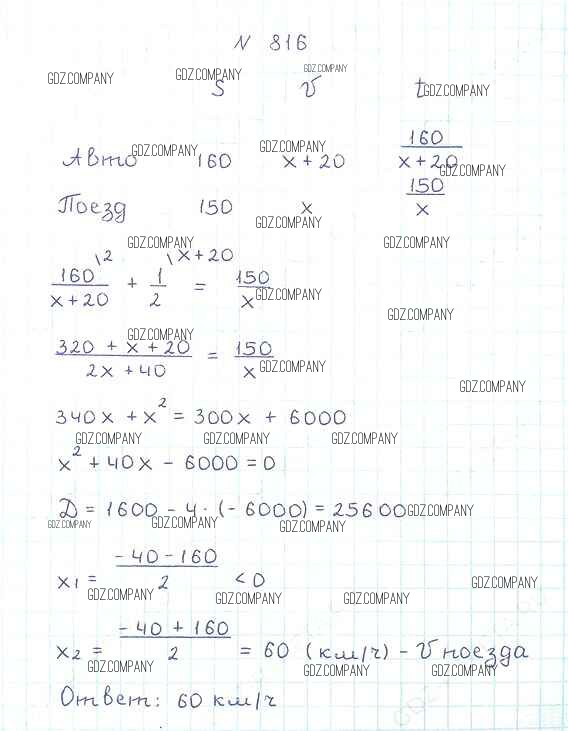 N 816
GDZ.COMPANY GDZ.COMPANY GDZ.COMPANY
S V t GDZ.COMPANY
Авто GDZ.COMPANY 160 GDZ.COMPANY x + 20 160/(x + 20) GDZ.COMPANY
Поезд 150 x 150/x
GDZ.COMPANY
GDZ.COMPANY GDZ.COMPANY
160\2/(x + 20) + 1\x+20/2 = 150/x GDZ.COMPANY
GDZ.COMPANY GDZ.COMPANY
(320 + x + 20)/(2x + 40) = 150/x GDZ.COMPANY
GDZ.COMPANY
340x + x² = 300x + 6000
GDZ.COMPANY GDZ.COMPANY GDZ.COMPANY
x² + 40x - 6000 = 0
Д = 1600 - 4 · (- 6000) = 25600 GDZ.COMPANY
GDZ.COMPANY GDZ.COMPANY GDZ.COMPANY
x₁ = (- 40 - 160)/2 < 0 GDZ.COMPANY
GDZ.COMPANY GDZ.COMPANY GDZ.COMPANY
x₂ = (- 40 + 160)/2 = 60 (км/ч) - V поезда
GDZ.COMPANY GDZ.COMPANY GDZ.COMPANY
Ответ: 60 км/ч